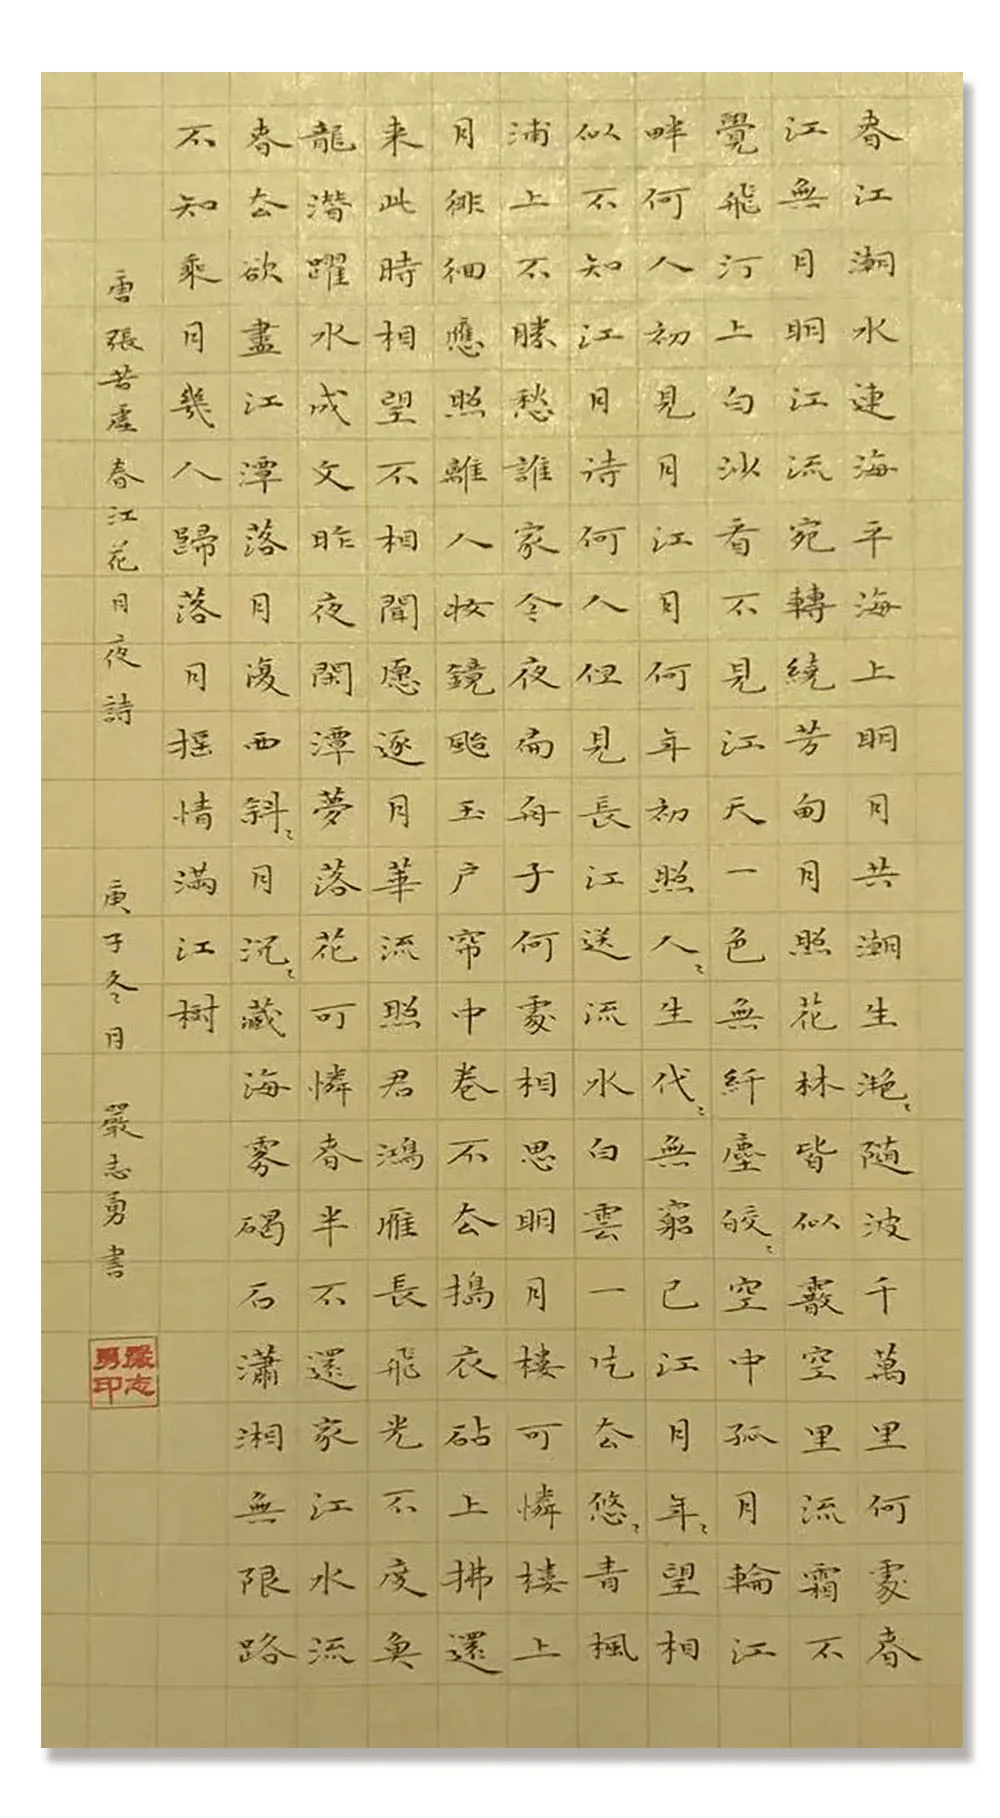 春江潮水連海平海上明月共潮生滟〻随波千萬里何處春
江無月明江流宛轉繞芳甸月照花林皆似霰空里流霜不
覺飛汀上白沙看不見江天一色無纤塵皎〻空中孤月輪江
畔何人初見月江月何年初照人〻生代〻無窮已江月年〻望相
似不知江月待何人但見長江送流水白雲一片去悠〻青楓
浦上不勝愁誰家今夜扁舟子何處相思明月樓可憐樓上
月徘徊應照離人妝鏡颱玉户帘中卷不去搗衣砧上拂還
来此時相望不相聞愿逐月華流照君鴻雁長飛光不度魚
龍潛躍水成文昨夜閑潭夢落花可憐春半不還家江水流
春去欲盡江潭落月復西斜〻月沉〻藏海雾碣石瀟湘無限路
不知乘月幾人歸落月摇情滿江樹
唐張若虛春江花月夜詩 庚子冬月 嚴志勇書
嚴志勇印